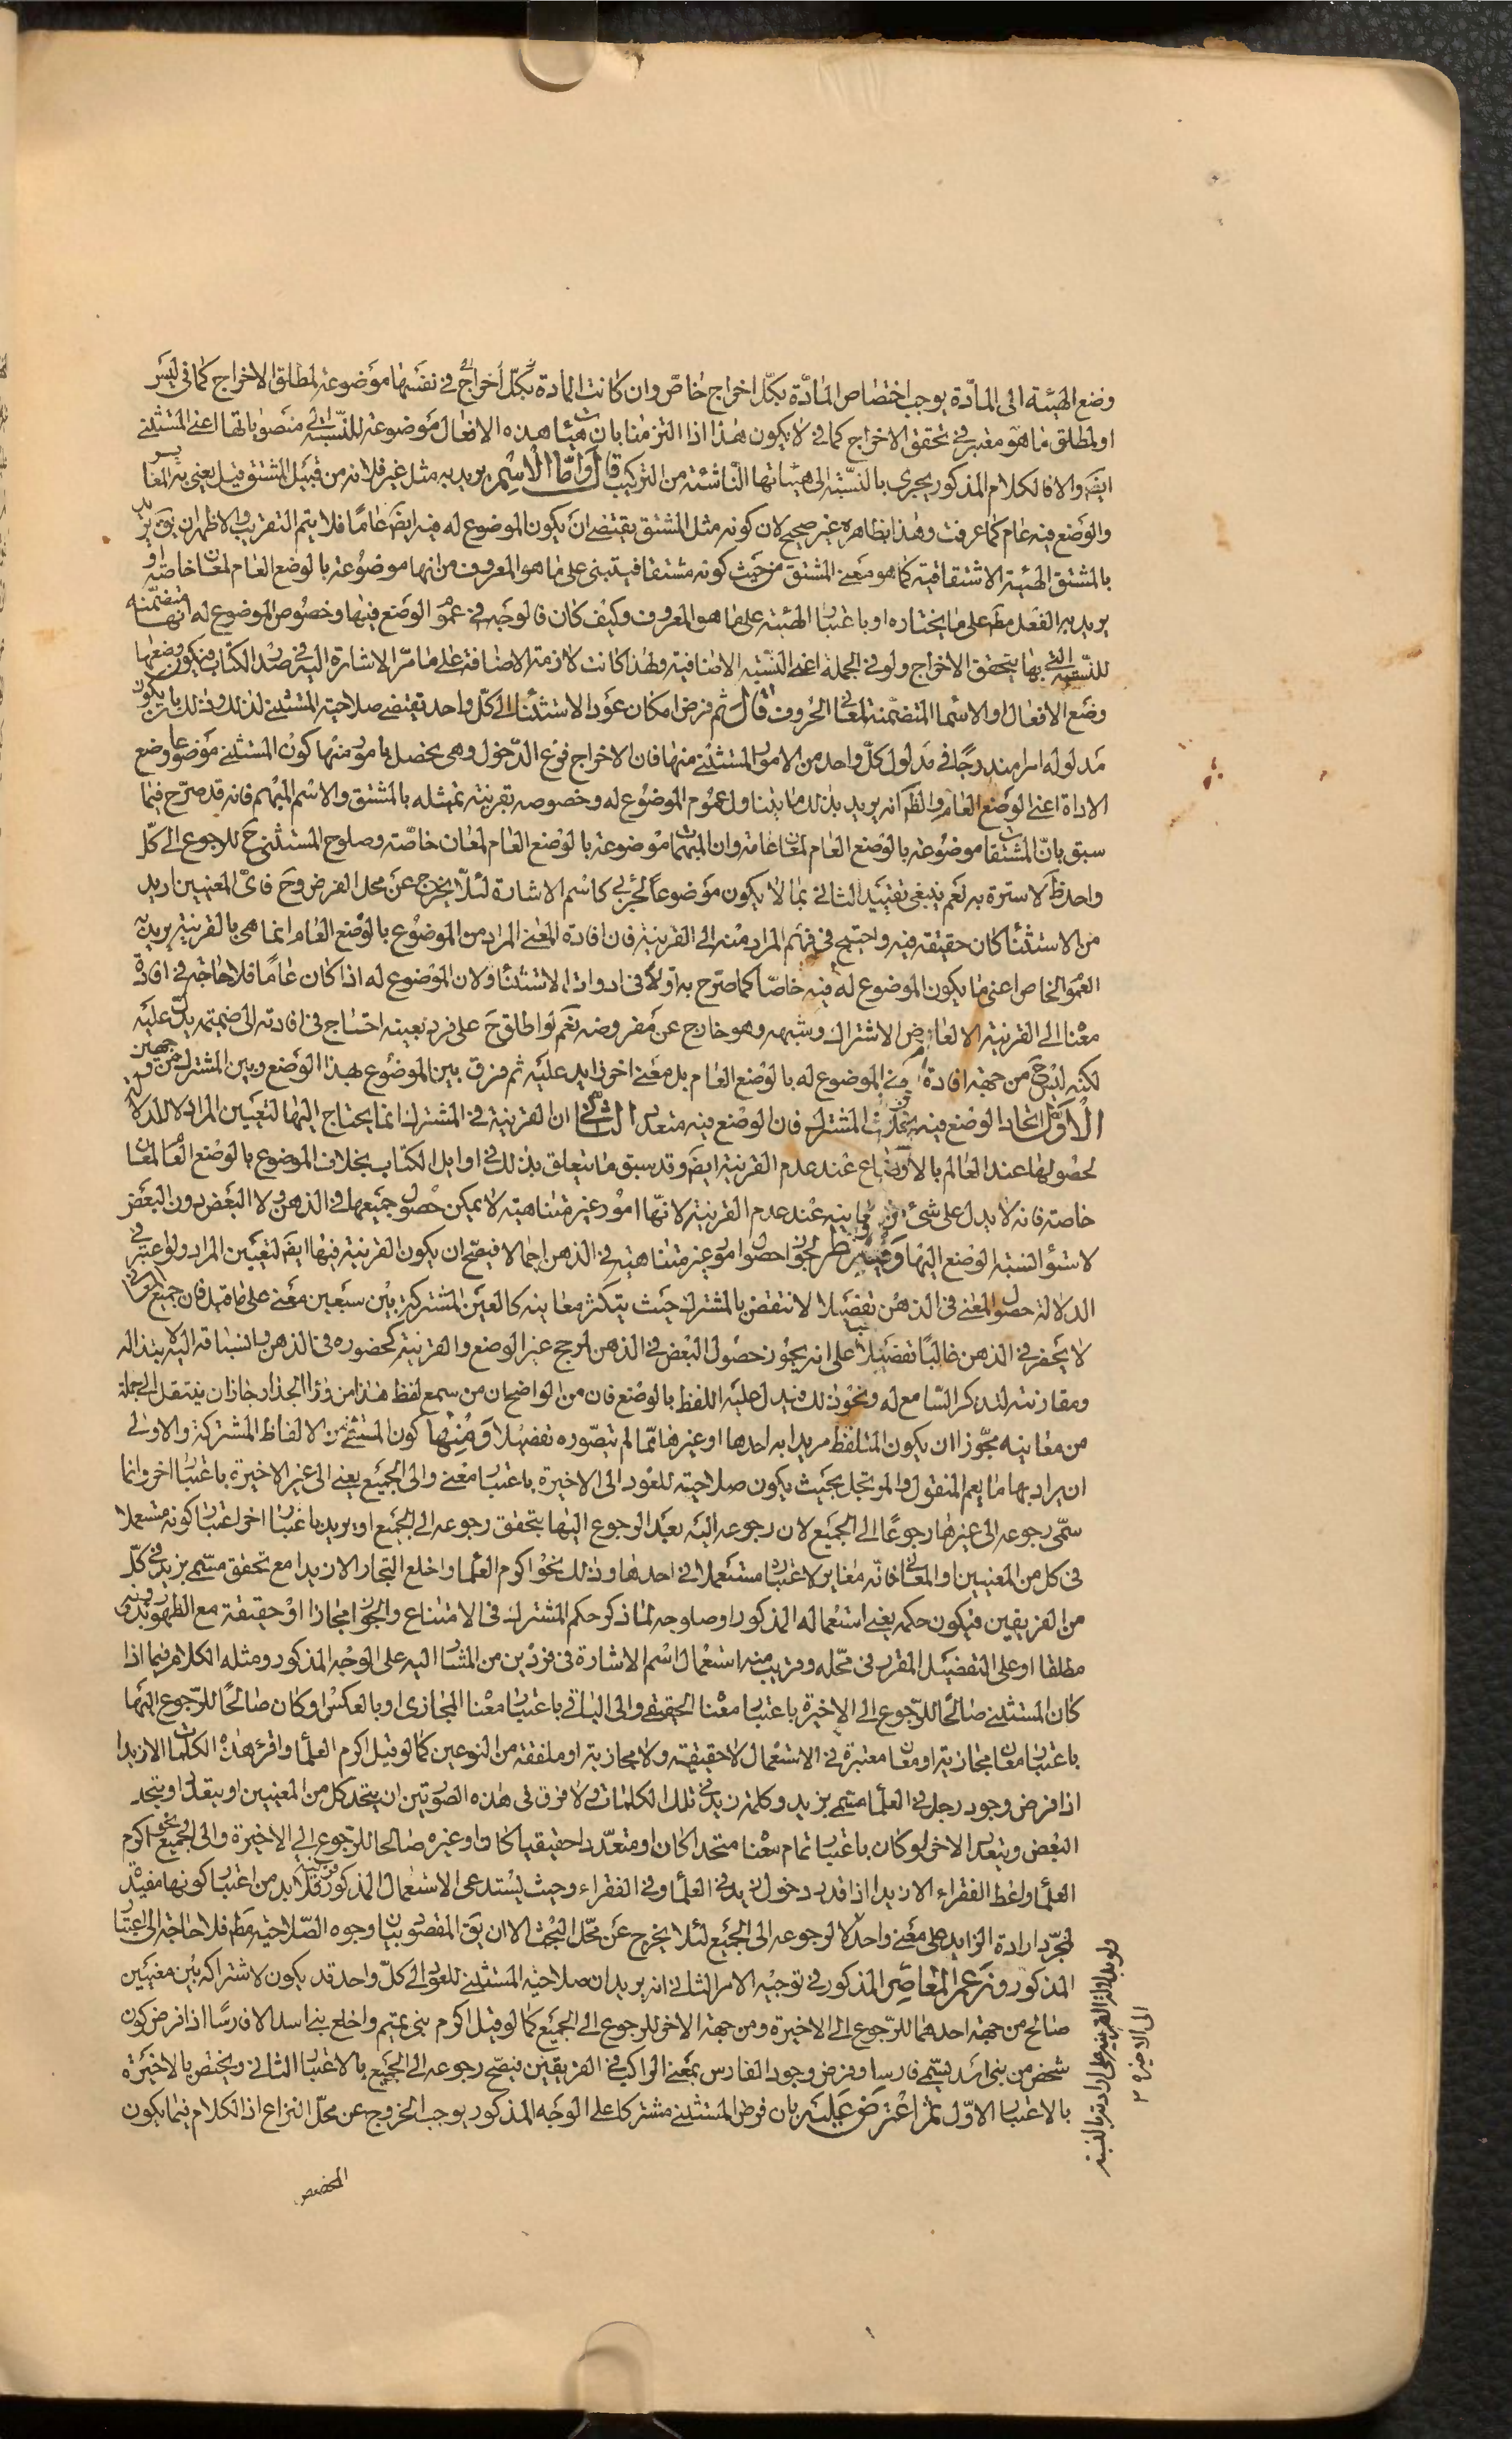 وضع الهيئة الى المادّة يوجب اختصاص المادّة بكلّ اخراج خاصّ وان كانت المادة بكلّ اخراج في نفسها موضوعة لمطلق الاخراج كما في ليس
او لمطلق ما هو معتبر في تحقق الاخراج كما في لا يكون هذا اذا التزمنا بان هيئات هذه الافعال موضوعة للنسبة الى منصوباتها اعني المستثنى
ايضا والا فالكلام المذكور يجرى بالنسبة الى هيئاتها الناشئة من التركيب قال وامّا الاسم يريد به مثل غير فلانه من قبيل المشتق قيل يعنى به المغاير
والوضع فيه عام كما عرفت وهذا بظاهره غير صحيح لان كونه مثل المشتق يقتضى ان يكون الموضوع له فيه ايضا عامّا فلا يتم التقريب والاظهر ان يق يريد
بالمشتق الهيئة الاشتقاقية كما هو معنى المشتق من حيث كونه مشتقا فيبتنى على ما هو المعروف من انها موضوعة بالوضع العام لمعان خاصّة او
يريد به الفعل مط على ما يختاره او باعتبار الهيئة على ما هو المعروف وكيف كان فالوجه في عموم الوضع فيها وخصوص الموضوع له انها متضمنة
للنسبة التي بها يتحقق الاخراج ولو في الجملة اعنى النسبة الاضافية ولهذا كانت لازمة الاضافة على ما مرّ الاشارة اليه في صدر الكتاب فيكون وضعها
وضع الافعال او الاسماء المتضمنة لمعاني الحروف قال ثم فرض امكان عود الاستثناء الى كلّ واحد يقتضى صلاحية المستثنى لذلك وذلك بان يكون
مدلوله امرا مندرجًا في مدلول كلّ واحد من الامور المستثنى منها فان الاخراج فرع الدّخول وهى يحصل بامور منها كون المستثنى موضوعا وضع
الاداة اعنى الوضع العام والظ انه يريد بذلك ما يتناول عموم الموضوع له وخصوصه بقرينة تمثيله بالمشتق والاسم المبهم فانه قد صرّح فيما
سبق بانّ المشتقات موضوعة بالوضع العام لمعان عامة وان المبهمات موضوعة بالوضع العام لمعان خاصّة وصلوح المستثنى ح للرجوع الى كلّ
واحد ظ لا سترة به نعم ينبغى تقييد الثاني بما لا يكون موضوعاً لجزئى كاسم الاشارة لئلّا يخرج عن محل الفرض وح فاىّ المعنيين اريد
من الاستثناء كان حقيقة فيه واحتيج في فهم المراد منه الى القرينة فان افادة المعنى المراد من الموضوع بالوضع العام انما هى بالقرينة يريد به
العموم الخاص اعنى ما يكون الموضوع له فيه خاصّا كما صرّح به اولا في ادوات الاستثناء ولان الموضوع له اذا كان عامّا فلا حاجة في افادة
معناه الى القرينة الا لعارض الاشتراك وشبهه وهو خارج عن مفروضه نعم لو اطلق ح على فرد بعينه احتاج في افادته الى ضميمة يدلّ عليه
لكنه ليس ح من جهة افادة معنى الموضوع له بالوضع العام بل معنى اخر زايد عليه ثم فرق بين الموضوع بهذا الوضع وبين المشترك من وجهين
الأوّل اتحاد الوضع فيه بخلاف المشترك فان الوضع فيه متعدد الثاني ان القرينة في المشترك انما يحتاج اليها لتعيين المراد لا للدلالة
لحصولها عند العالم بالاوضاع عند عدم القرينة ايضا وقد سبق ما يتعلق بذلك في اوايل الكتاب بخلاف الموضوع بالوضع العام لمعان
خاصة فانه لا يدل على شئ من معانيه عند عدم القرينة لانّها امور غير متناهية لا يمكن حصول جميعها في الذهن ولا البعض دون البعض
لاستواء نسبة الوضع اليها وفيه نظر لجواز حصول امور غير متناهية في الذهن اجمالا فيصّح ان يكون القرينة فيها ايضا لتعيين المراد ولو اعتبر في
الدلالة حصول المعنى في الذهن تفصيلا لانتقض بالمشترك حيث يتكثر معانيه كالعين المشتركة بين سبعين معنى على ما قيل فان جميع المعاني
لا يحضر في الذهن غالبًا تفصيلا على انه يجوز حصول البعض في الذهن لمرجح غير الوضع والقرينة كحضوره في الذهن وانسباقه اليه لابتذاله
ومقارنته لتذكر السّامع له ونحو ذلك فيدل عليه اللفظ بالوضع فان من الواضح ان من سمع لفظ هذا من وراء الجدار جاز ان ينتقل الى جملة
من معانيه مجوّزا ان يكون المتلفظ مريدا به احدها او غيرها ممّا لم يتصّوره تفصيلا ومنها كون المستثنى من الالفاظ المشتركة والاولى
ان يراد بها ما يعم المنقول والمرتجل بحيث يكون صلاحيته للعود الى الاخيرة باعتبار معنى والى الجميع يعنى الى غير الاخيرة باعتبار اخر وانما
سمّى رجوعه الى غيرها رجوعًا الى الجميع لان رجوعه اليه بعد الرجوع اليها يتحقق رجوعه الى الجميع او يريد باعتبار اخر اعتبار كونه مستعملا
في كل من المعنيين او المعاني فانّه مغاير لاعتباره مستعملا في احدها وذلك نحو اكرم العلماء واخلع التجار الا زيدا مع تحقق مسّمى بزيد في كلّ
من الفريقين فيكون حكمه يعنى استعماله المذكور او صلوحه لما ذكر حكم المشترك في الامتناع والجواز مجازا او حقيقة مع الظهور وبدونه
مطلقا او على التفضيل المقرر في محّله وقريب منه استعمال اسم الاشارة في فردين من المشار اليه على الوجه المذكور ومثله الكلام فيما اذا
كان المستثنى صالحًا للرّجوع الى الاخيرة باعتبار معناه الحقيقى والى الباقي باعتبار معناه المجازى او بالعكس او كان صالحًا للرّجوع اليها
باعتبار معان مجازية او معان معتبرة في الاستعمال لا حقيقية ولا مجازية او ملفقة من النوعين كما لو قيل اكرم العلماء واقرء هذه الكلمات الا زيدا
اذا فرض وجود رجل في العلماء مسّمى بزيد وكلمة زيد في تلك الكلمات ولا فرق في هذه الصّور بين ان يتحد كل من المعنيين او يتعدّد او يتحد
البعض ويتعدد الاخر ولو كان باعتبار تمام معناه متحدا كان او متعدّدا حقيقيا كان او غيره صالحا للرّجوع الى الاخيرة والى الجميع نحو اكرم
العلماء واعط الفقراء الا زيدا اذا قدر دخول زيد في العلماء وفي الفقراء وحيث يستدعى الاستعمال المذكور قرينة فلا بد من اعتبار كونها مفيدة
لمجرّد ارادة الزايد على معنى واحد لا لرجوعه الى الجميع لئلا يخرج عن محّل البحث الا ان يق المقصود بيان وجوه الصّلاحية مط فلا حاجة الى اعتبار
المذكور وزعم المعاصر المذكور في توجيه الامر الثاني انه يريد ان صلاحية المستثنى للعود الى كلّ واحد قد يكون لاشتراكه بين معنيين
صالح من جهة احدهما للرّجوع الى الاخيرة ومن جهة الاخر للرجوع الى الجميع كما لو قيل اكرم بنى تميم واخلع بنى اسد الا فارسًا اذا فرض كون
شخص من بنى اسد يسّمى فارسا وفرض وجود الفارس بمعنى الراكب في الفريقين فيصّح رجوعه الى الجميع بالاعتبار الثاني ويختص بالاخيرة
بالاعتبار الاوّل ثم اعترض عليه بان فرض المستثنى مشتركا على الوجه المذكور يوجب الخروج عن محّل النزاع اذ الكلام فيما يكون
المخصص
ولو بدلالة القرينة على ارادته بالنسبة
الى الاخيرة ٢